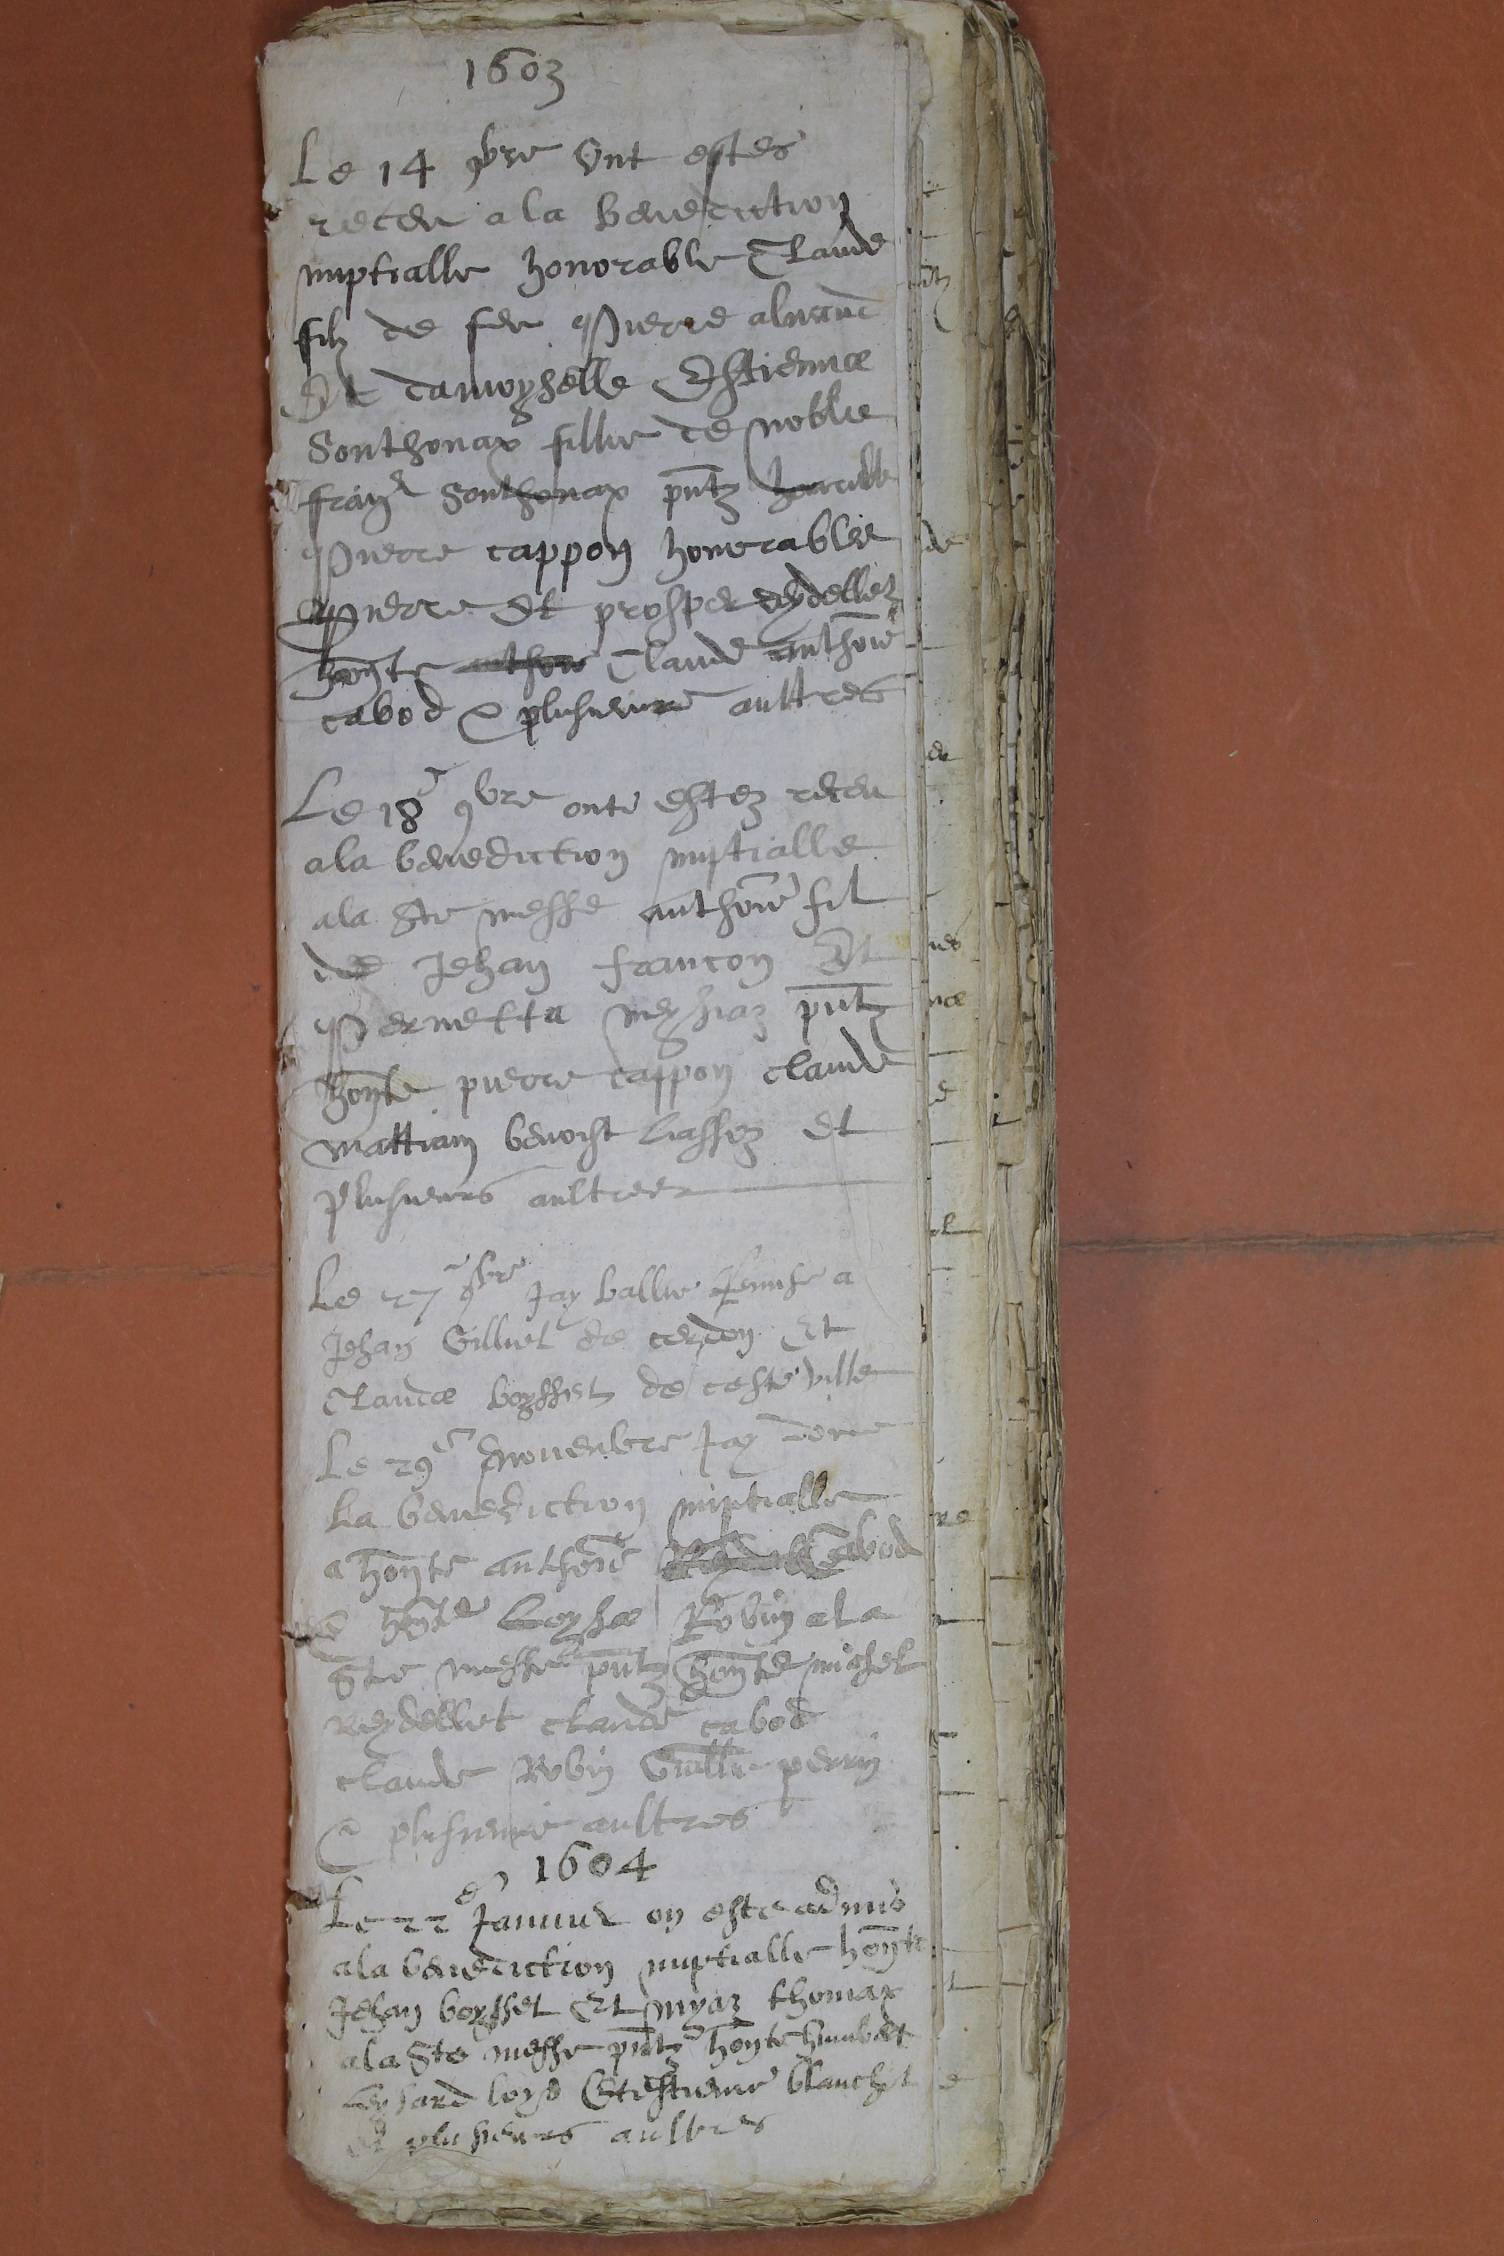 1603
Le 14 9bre Ont estes
receu a la benediction
nuptialle honorable Claude
filz de feu Pierre
Et damoyselle Estienna
Sonthonax fillie de noble
Sonthonax pntz
Pierre cappon honorablie
Pierre Et prosper reydelletz
honte Claude anthoie
cabod & plusieurs aultres
Le 18e 9bre onte estez receu
a la benediction nuptialle
a la Ste messe anthoie fil
de Jehan francon Et
Pernetta pntz
honte pierre cappon claude
benoist Et
plusieurs aultres
Le 27e 9bre Jay ballie a
Jehan Gilliet de cerdon Et
Clauda boysset de ceste ville
Le 29e novenbre Jay done
la benediction nuptialle
a honte anthoie Cabod
& honte loysa Robin a la
Ste messe pntz honte michel
Reydellet claude cabod
claude Robin Guille perrin
& plusieurs aultres
1604
Le 22e Janvier on este admis
a la benediction nuptialle honte
Jehan boysset Et myaz thomax
a la Ste messe pntz honte humbert
loys Et estienne blanchet
Et plusieurs aultres